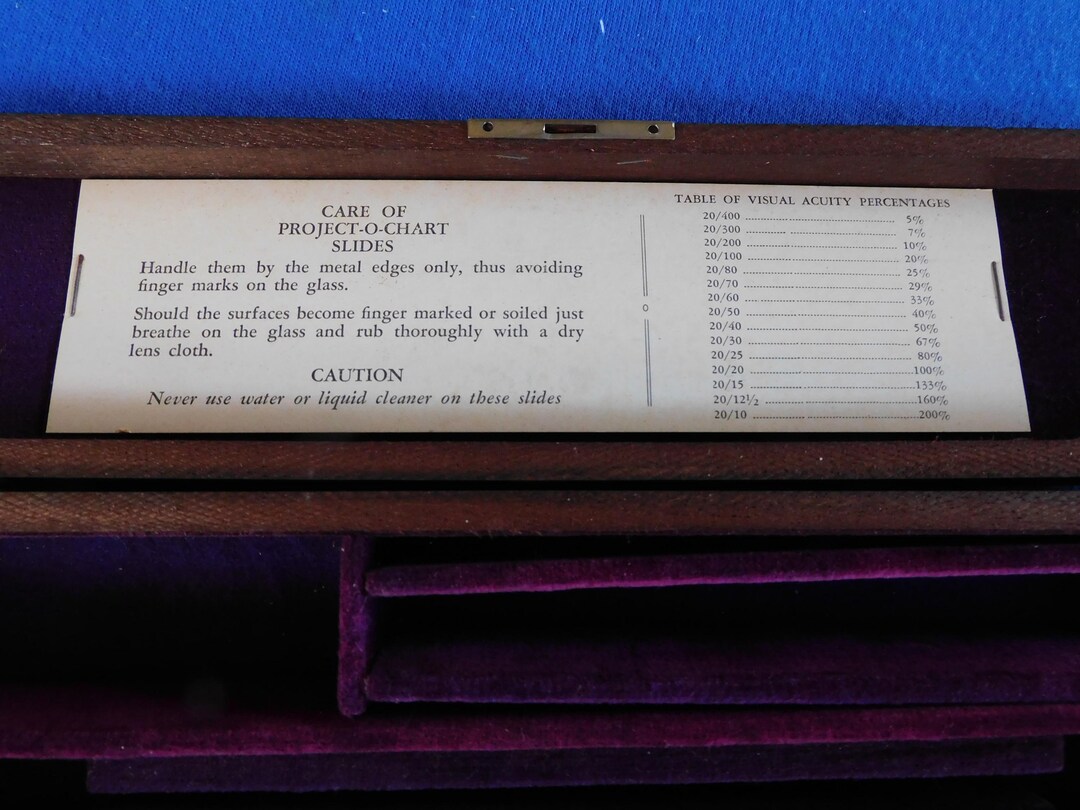 CARE OF
PROJECT-O-CHART
SLIDES
Handle them by the metal edges only, thus avoiding
finger marks on the glass.
Should the surfaces become finger marked or soiled just
breathe on the glass and rub thoroughly with a dry
lens cloth.
CAUTION
Never use water or liquid cleaner on these slides
TABLE OF VISUAL ACUITY PERCENTAGES
20/400 ........................ 5%
20/300 ........................ 7%
20/200 ........................ 10%
20/100 ........................ 20%
20/80 ........................ 25%
20/70 ........................ 29%
20/60 ........................ 33%
20/50 ........................ 40%
20/40 ........................ 50%
20/30 ........................ 67%
20/25 ........................ 80%
20/20 ........................ 100%
20/15 ........................ 133%
20/12½ ........................ 160%
20/10 ........................ 200%